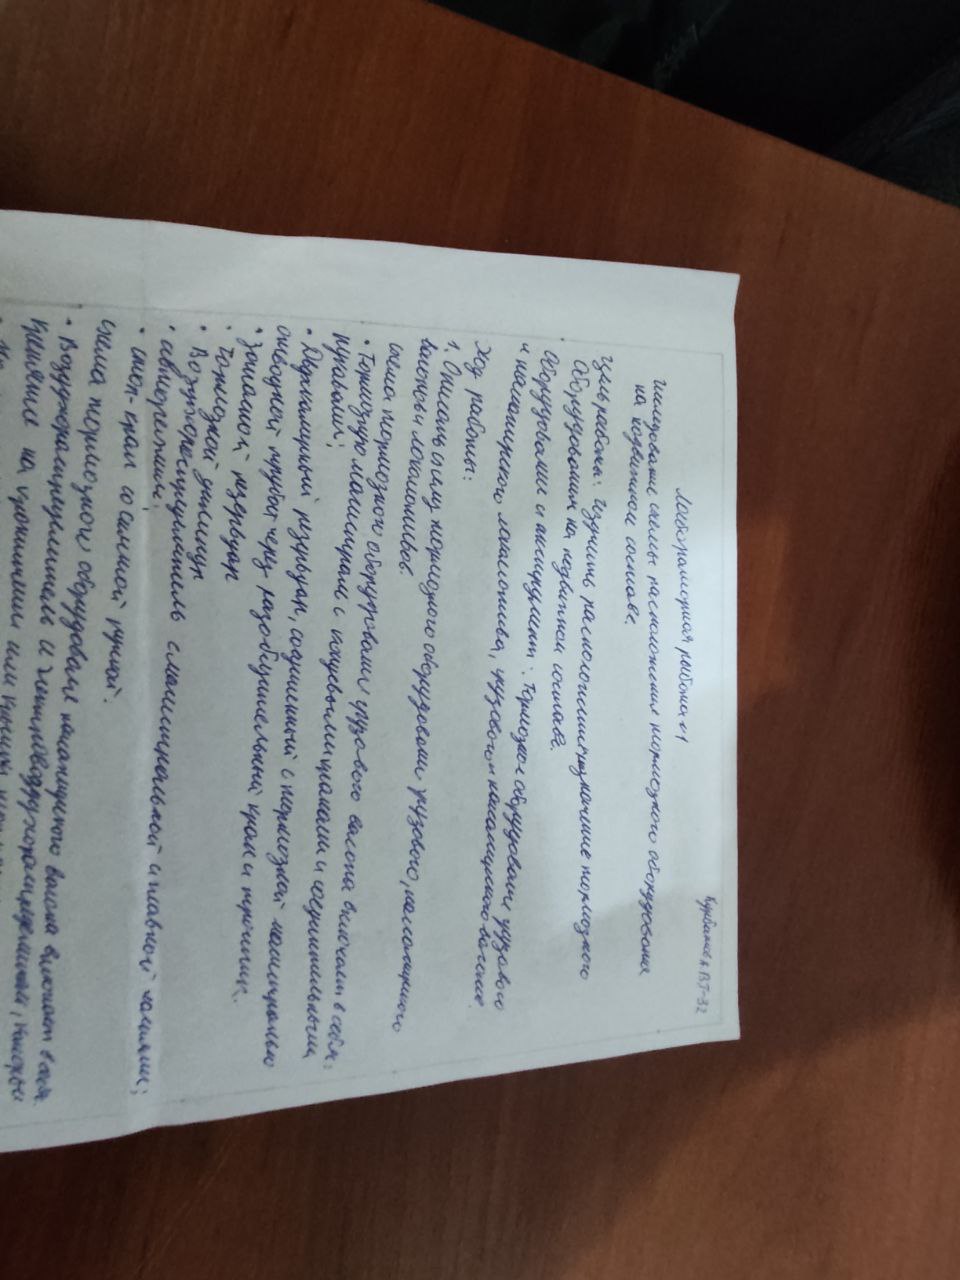 ВТ-32
Лабораторная работа №1
Исследование схемы расположения тормозного оборудования
на подвижном составе.
Цель работы: Изучить расположение и назначение тормозного
оборудования на подвижном составе.
Оборудование и инструмент: Тормозное оборудование грузового
и пассажирского локомотива, грузового и пассажирского вагонов.
Ход работы:
1. Описать схему тормозного оборудования грузового, пассажирского
вагонов и локомотивов.
Схема тормозного оборудования грузового вагона включает в себя:
• Тормозную магистраль с концевыми кранами и соединительными
рукавами;
• Двухкамерный резервуар, соединенный с тормозной магистралью
отводной трубой через разобщительный кран и тройник.
• Запасной резервуар
• Тормозной цилиндр
• Воздухораспределитель с магистральной и главной частями;
• авторежим;
• стоп-кран со съемной ручкой.
Схема тормозного оборудования пассажирского вагона включает в себя:
• Воздухораспределитель и электровоздухораспределитель, которые
крепление на кронштейне или крышке